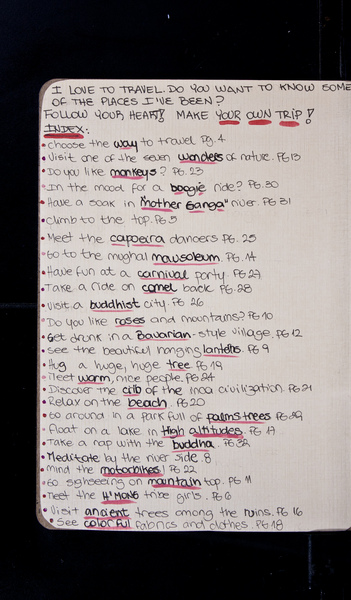 I LOVE TO TRAVEL. DO YOU WANT TO KNOW SOME
OF THE PLACES I'VE BEEN?
FOLLOW YOUR HEART! MAKE YOUR OWN TRIP!
INDEX:
• Choose the way to travel Pg. 4
• Visit one of the seven wonders of nature. PG 13
• Do you like monkeys? PG. 23
• In the mood for a boogie ride? PG. 30
• Have a soak in "Mother Ganga" river. PG 31
• Climb to the top. PG 5
• Meet the capoeira dancers PG. 25
• Go to the mughal mausoleum. PG. 14
• Have fun at a carnival party. PG 27
• Take a ride on camel back. PG. 28
• Visit a buddhist city. PG 26
• Do you like roses and mountains? PG 10
• Get drunk in a Bavarian-style village. PG 12
• See the beautiful hanging lanterns. PG 9
• Hug a huge, huge tree PG 19
• Meet warm, nice people. PG 24
• Discover the crib of the inca civilization. PG 21
• Relax on the beach. PG 20
• Go around in a park full of palmstrees PG 29
• Float on a lake in High altitudes. PG 17
• Take a nap with the buddha. PG 32
• Meditate by the river side. 8
• Mind the motorbikes! PG 22
• Go sighseeing on maintain top. PG 11
• Meet the H'MONG tribe girls. PG 6
• Visit ancient trees among the ruins. PG 16
• See colorful fabrics and clothes. PG 18